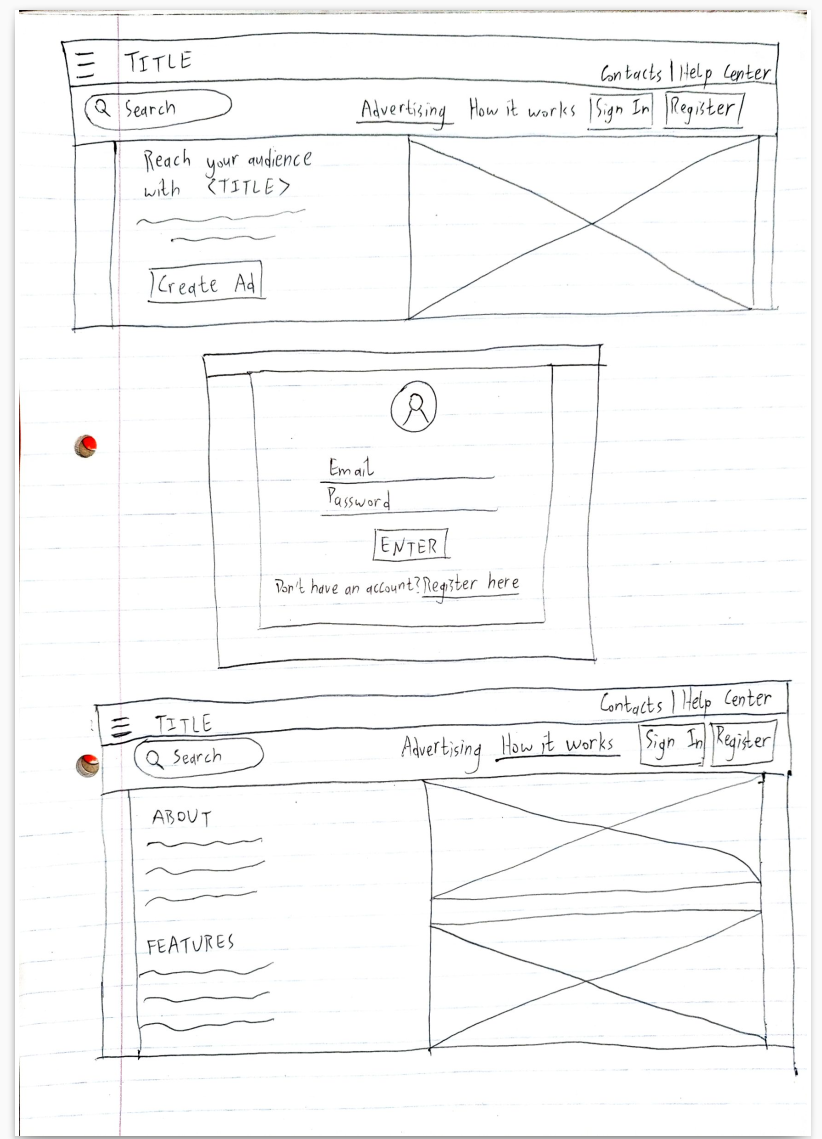 TITLE
Contacts | Help Center
Search
Advertising How it works Sign In Register
Reach your audience
with <TITLE>
Create Ad
Email
Password
ENTER
Don't have an account? Register here
Contacts | Help Center
TITLE
Advertising How it works Sign In Register
Search
ABOUT
FEATURES